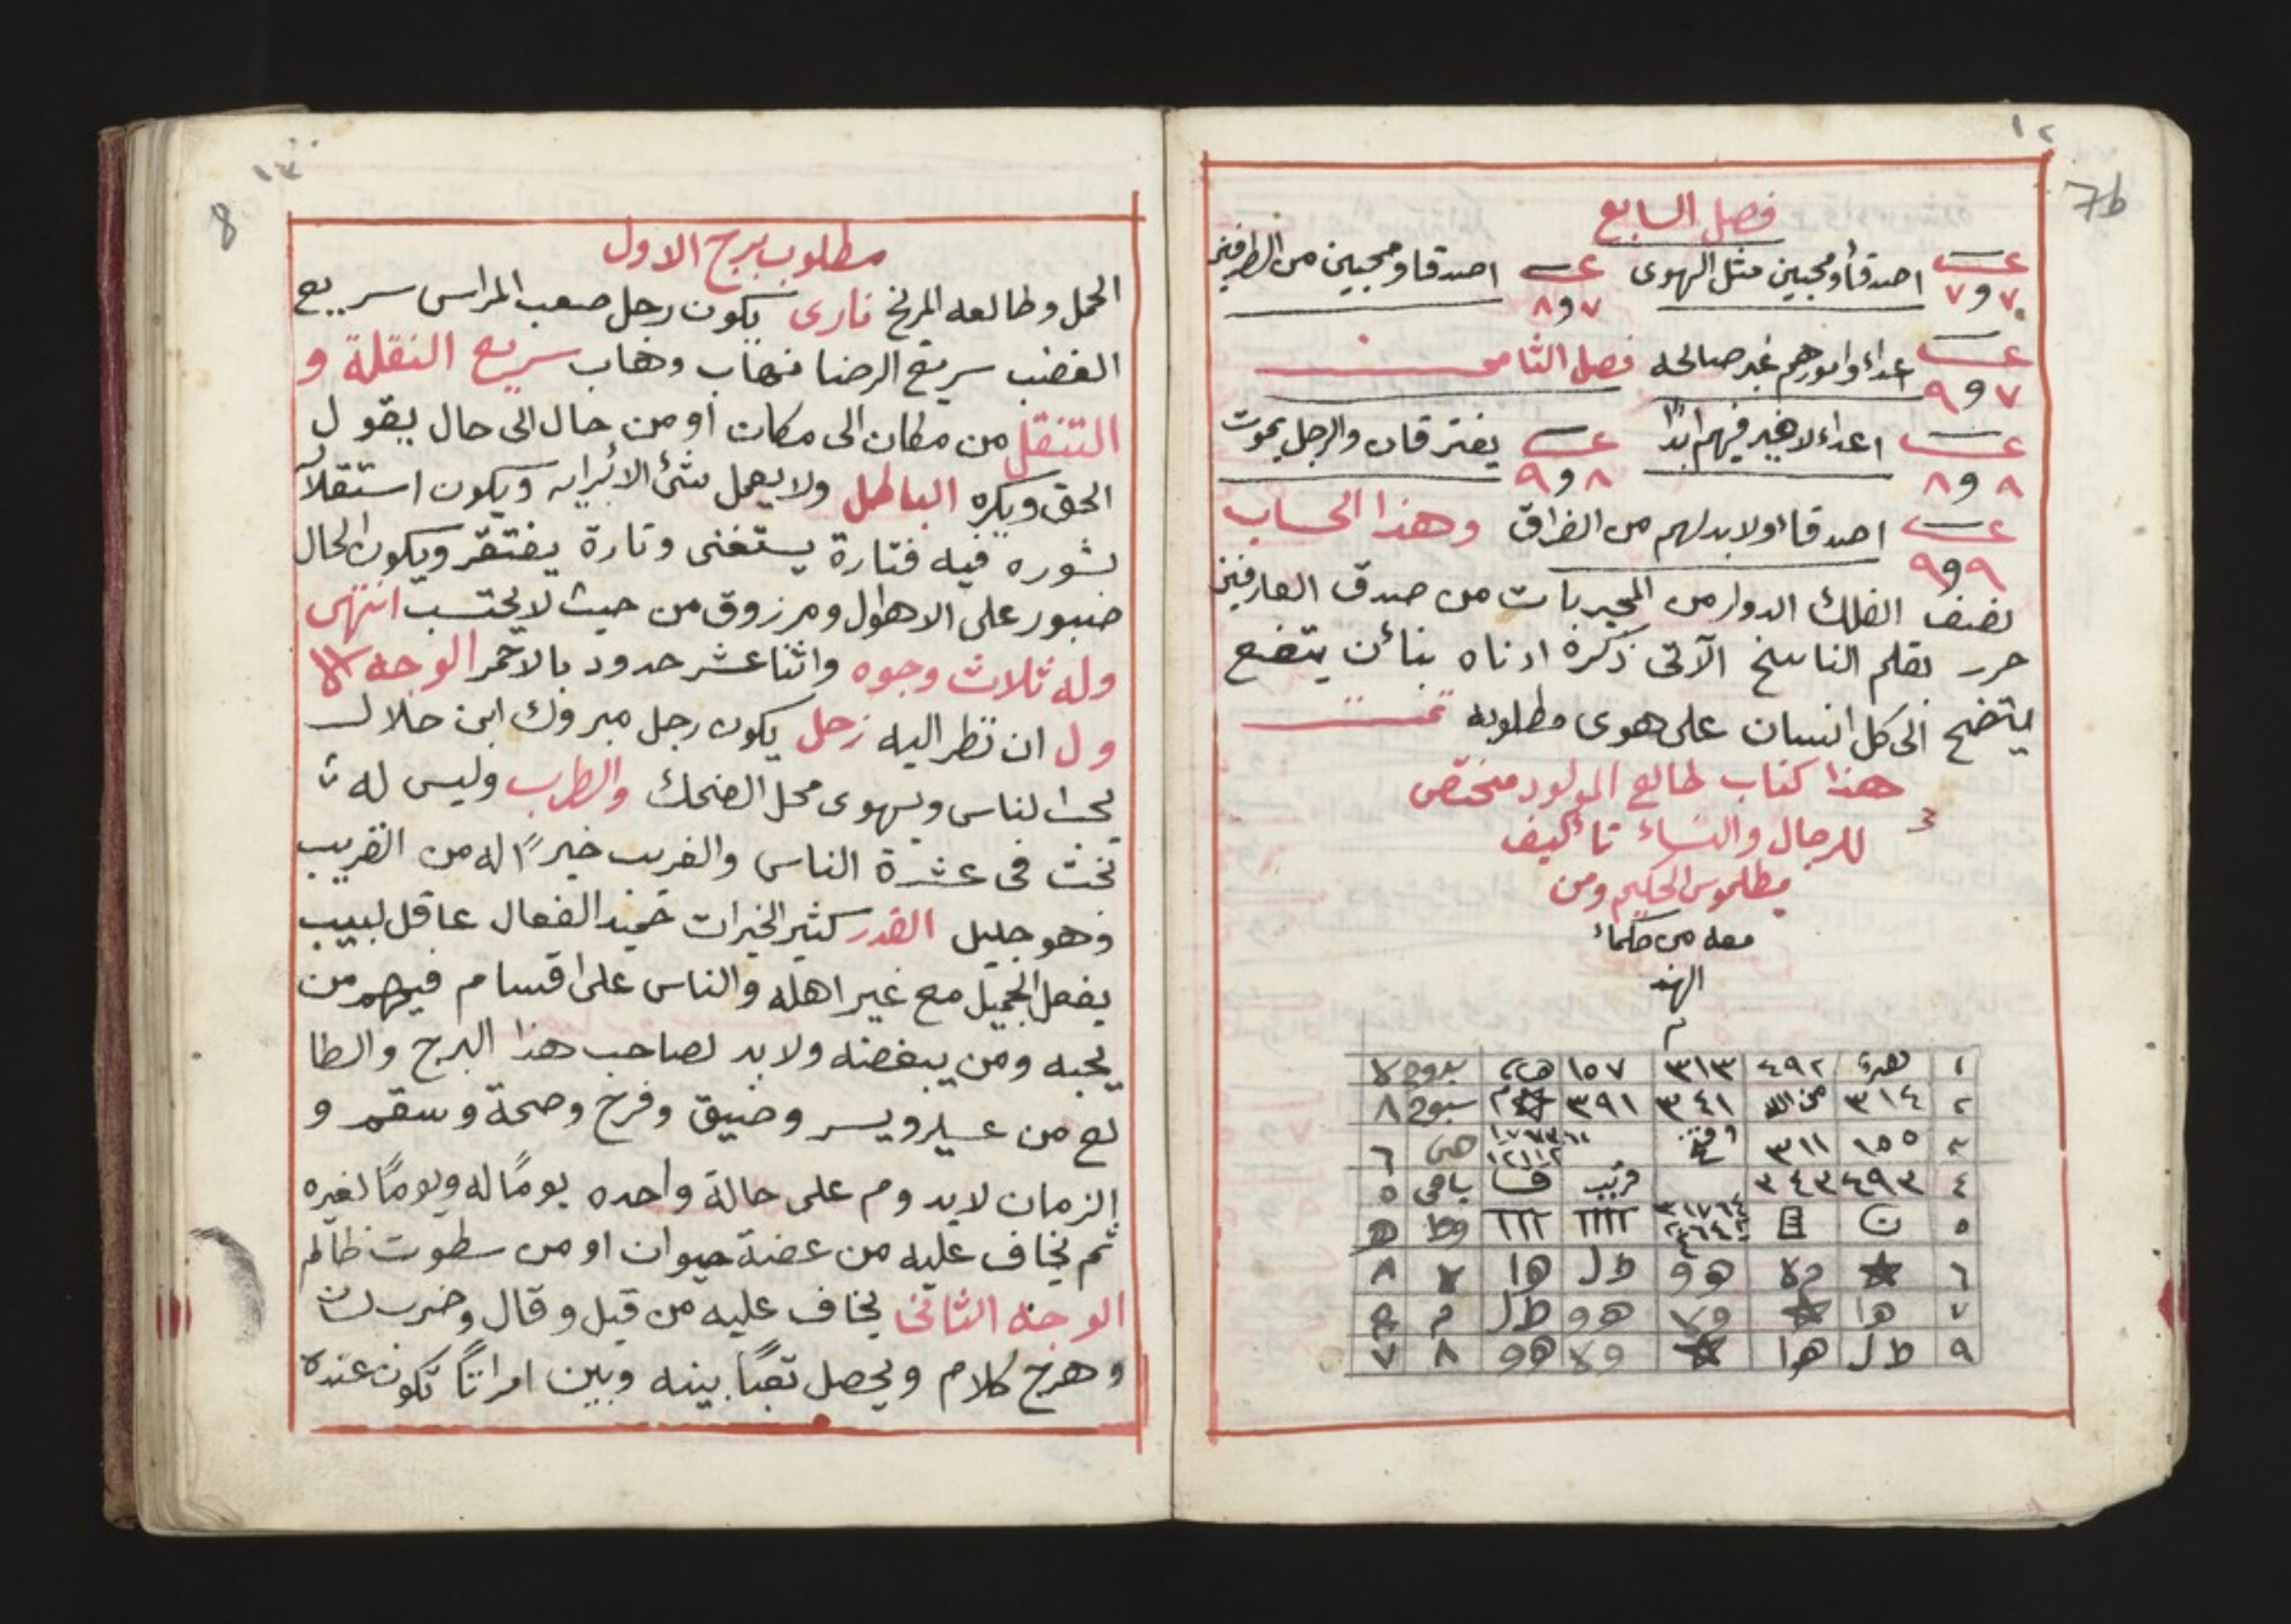 ١٢
7b
فصل السابع
عـــ ٧و٧ اصدقأومحبين مثل الهوى عـــ ٧و٨ اصدقاومحبين من الطرفين
عـــ ٧و٩ اعداء وامورهم غير صالحه فصل الثامن
عـــ ٨و٨ اعداء لاخير فيهم ابدًا عـــ ٨و٩ يفترقان والرجل يموت
عـــ ٩و٩ اصدقاء ولابد لهم من الفراق وهذا الحساب
نصف الفلك الدوار من المجربات من صدق العارفين
حرر بقلم الناسخ الآتى ذكرة ادناه بنائن ينتفع
ليتضح الى كل انسان على هوى مطلوبه تمت
هذا كتاب طالع المولود مختص
للرجال والنساء تأليف
بطلموس الحكيم ومن
معه من حكماء
الهند
م
١ ٤٩٢ ٣١٣ ١٥٧ بدوح
٢ ٣١٤ من الله ٣٤١ ٣٩١ سبوح ٨
٣ ١٥٥ ٣١١ وفتح ٦
٤ ٤٩٣ ٣٤٣ قريب ف باقى ٥
٥ ن ااا
٦ ★ ولا هو طل ها لا ٨
٧ ها ★ ولا هو طل م
٩ طل ها ★ ولا هو ٨ ٧
١٣
8
مطلوب برج الاول
الحمل وطالعه المريخ نارى يكون رجل صعب المراس سريع
الغضب سريع الرضا نهاب وهاب سريع النقلة و
التنقل من مكان الى مكان او من حال الى حال يقول
الحق ويكره الباطل ولا يعمل شئ الا برايه ويكون استقلاً
بشوره فيه فتارة يستغنى وتارة يفتقر ويكون الحال
صبور على الاهوال ومرزوق من حيث لايحتسب انتهى
وله ثلاث وجوه واثناعشر حدود بالاحمر الوجه الا
ول ان نظر اليه زحل يكون رجل مبروك ابن حلال
يحب الناس ويهوى محل الضحك والطرب وليس له
بخت فى عشرة الناس والغريب خيرًا له من القريب
وهو جليل القدر كثير الخيرات حميد الفعال عاقل لبيب
يفعل الجميل مع غير اهله والناس على اقسام فيهم من
يحبه ومن يبغضه ولابد لصاحب هذا البرج والطا
لع من عسر ويسر وضيق وفرح وصحة وسقم و
الزمان لايدوم على حالة واحده يومًا له ويومًا لغيره
ثم يخاف عليه من عضة حيوان او من سطوت ظالم
الوجه الثانى يخاف عليه من قيل وقال وضرب لسان
وهرج كلام ويحصل تعبًا بينه وبين امراتًا تكون عندة